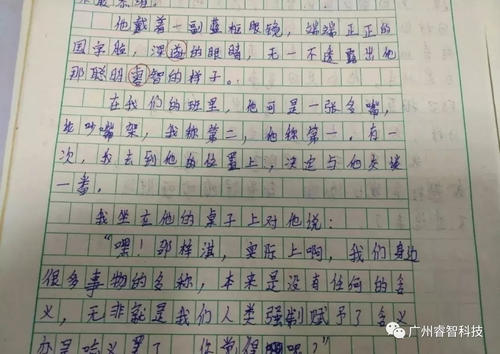 他戴着一副蓝框眼镜，端端正正的
国字脸，深邃的眼睛，无一不透露出他
那聪明睿智的样子。
在我们的班里，他可是一张名嘴，
论吵嘴架，我称第二，他称第一，有一
次，我去到他的位置上，决定与他大谈
一番。
我坐在他的桌子上对他说：
“嘿！那梓淇，实际上啊，我们身边
很多事物的名称，本来是没有任何的含
义，无非就是我们人类强制赋予了含义
你觉得
广州睿智科技